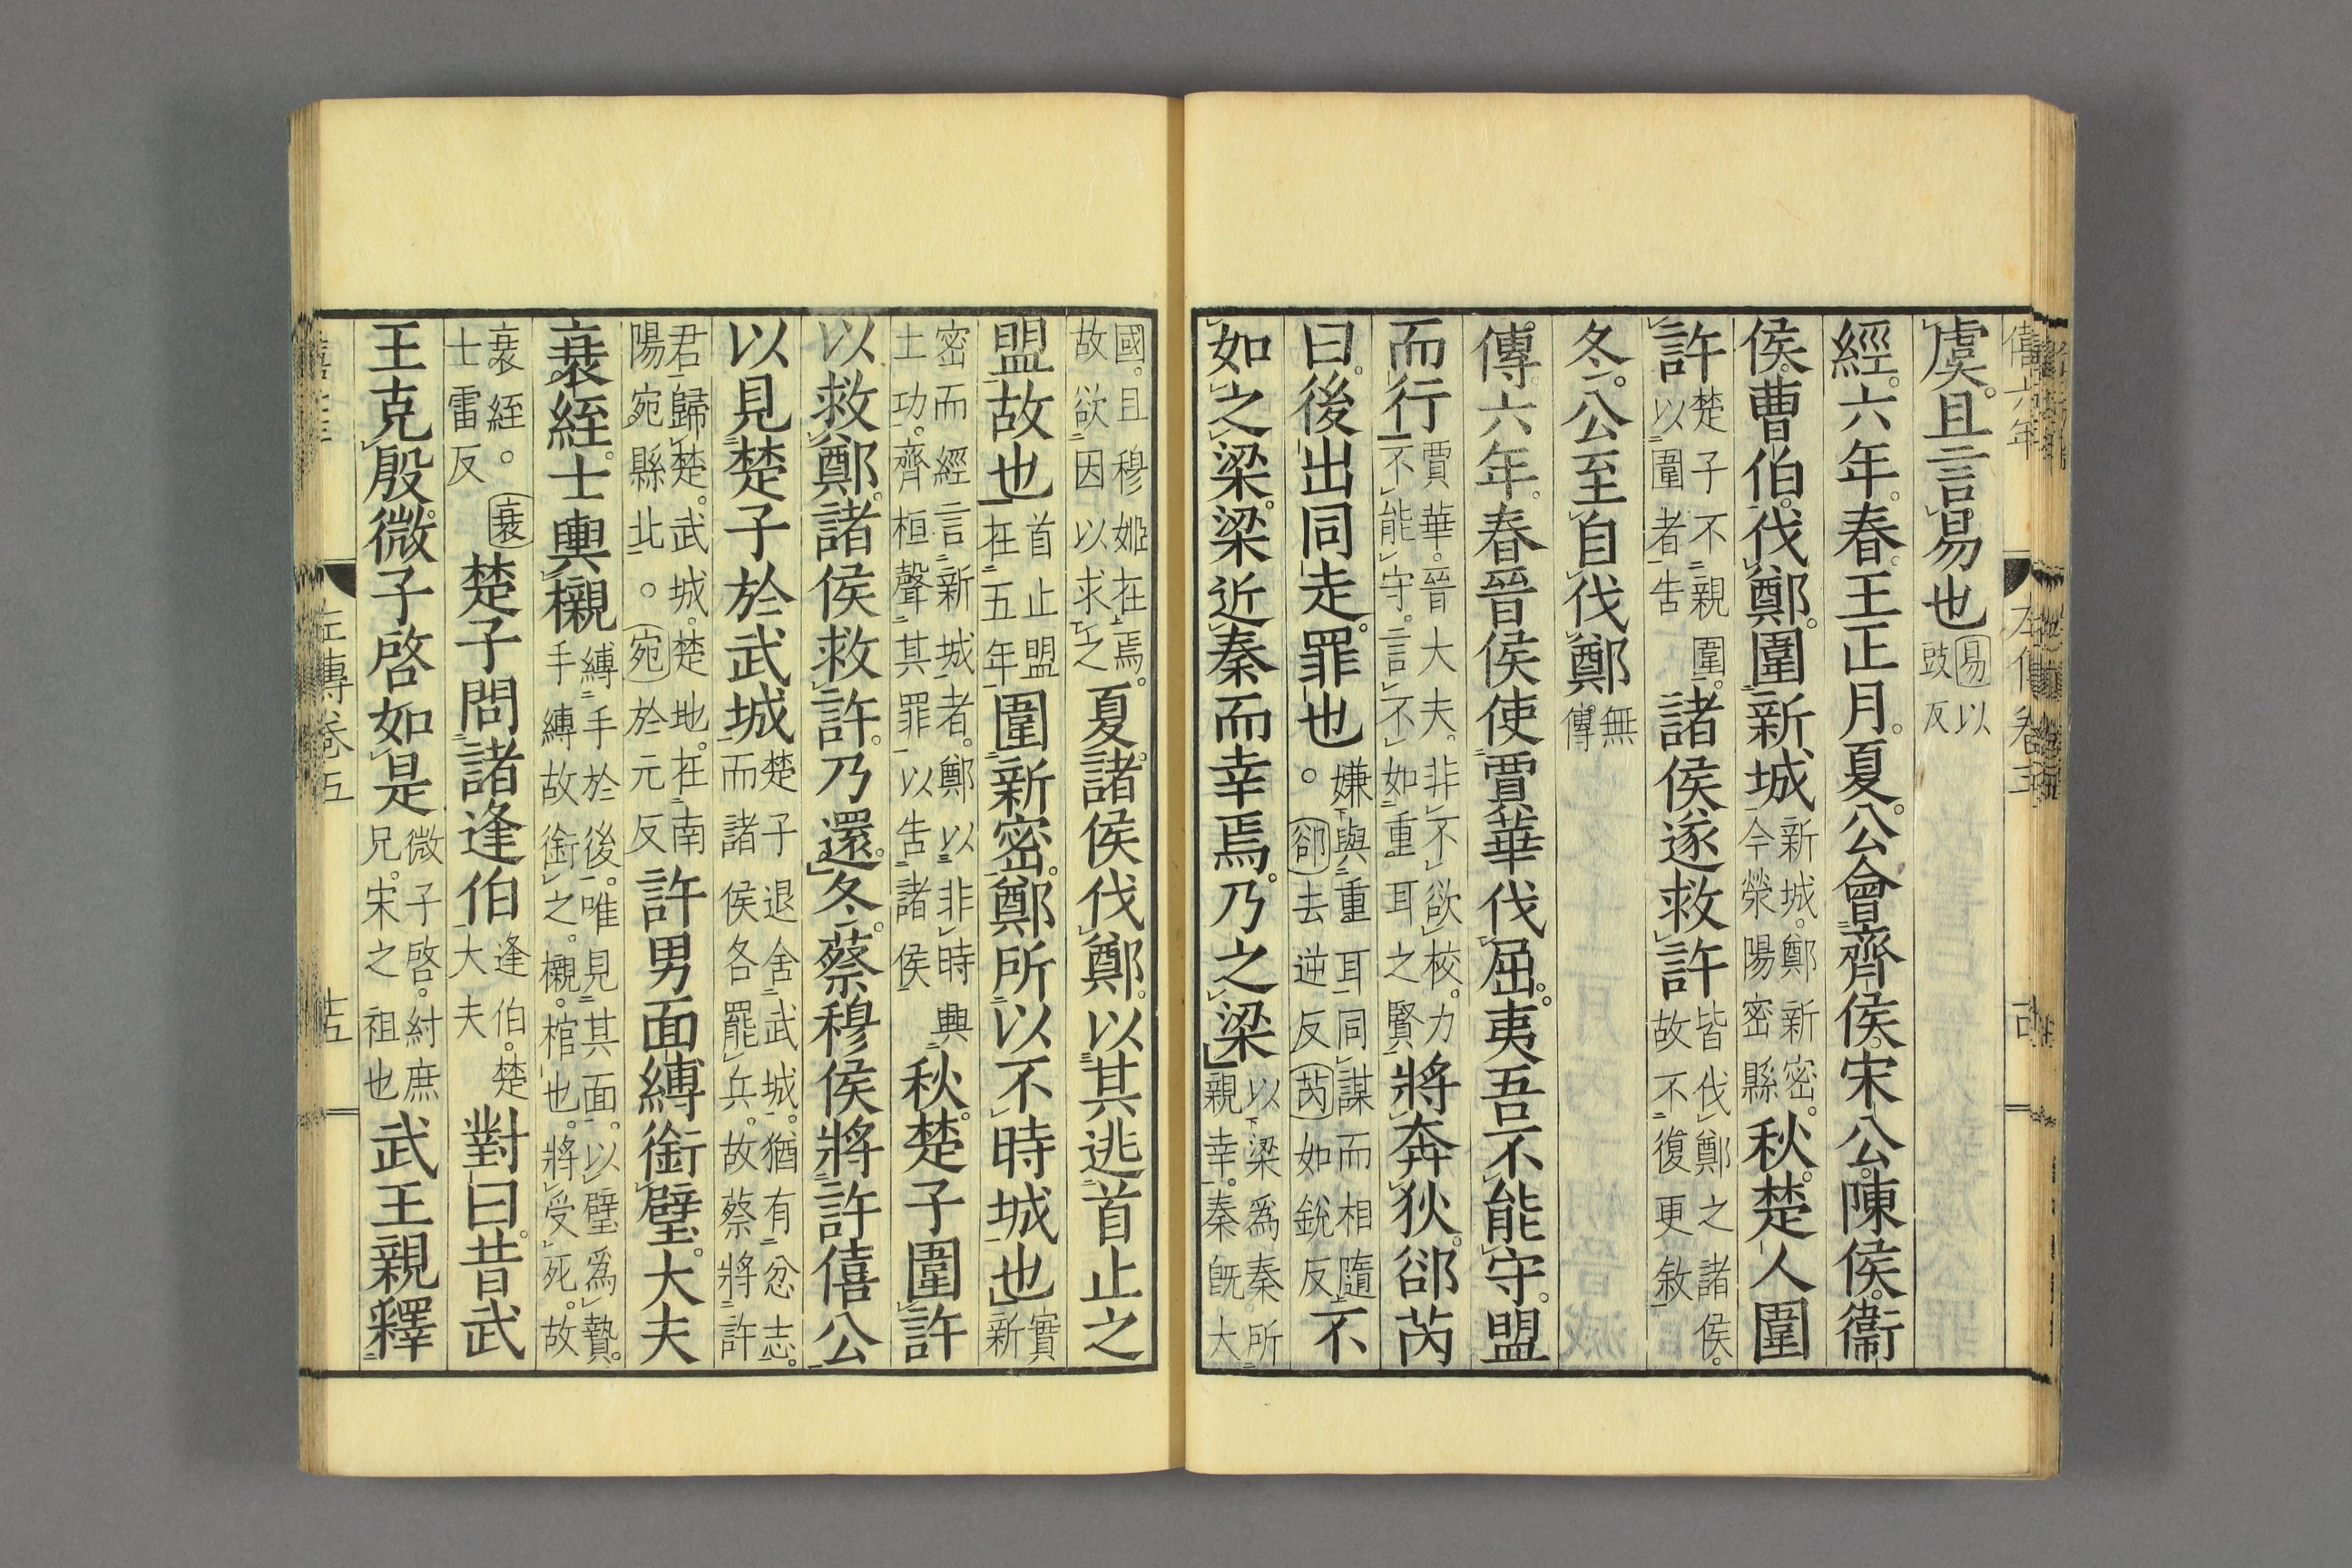 虞。且言易也易以豉反
經。六年。春。王正月。夏。公會齊侯。宋公。陳侯。衞
侯。曹伯。伐鄭。圍新城新城。鄭新密。今滎陽密縣秋。楚人圍
許楚子不親圍。以圍者告諸侯遂救許皆伐鄭之諸侯。故不復更敘
冬。公至自伐鄭無傳
傳。六年。春晉侯使賈華伐屈。夷吾不能守。盟
而行賈華。晉大夫。非不欲校。力不能守。言不如重耳之賢將奔狄。郤芮
曰。後出同走。罪也嫌與重耳同謀而相隨。郤去逆反芮如銳反不
如之梁。梁近秦而幸焉。乃之梁以梁爲秦所親幸。秦旣大
國。且穆姬在焉。故欲因以求之夏。諸侯伐鄭。以其逃首止之
盟故也首止盟在五年圍新密。鄭所以不時城也實新
密而經言新城者。鄭以非時興土功。齊桓聲其罪以告諸侯秋。楚子圍許
以救鄭。諸侯救許。乃還。冬。蔡穆侯將許僖公
以見楚子於武城楚子退舍武城。猶有忿志。而諸侯各罷兵。故蔡將許
君歸楚。武城。楚地。在南陽宛縣北。宛於元反許男面縛銜璧。大夫
衰絰。士輿櫬縛手於後。唯見其面。以璧爲贄。手縛故銜之。櫬。棺也。將受死。故
衰絰。衰士雷反楚子問諸逢伯逢伯。楚大夫對曰。昔武
王克殷。微子啓如是微子啓。紂庶兄。宋之祖也武王親釋
左傳卷五